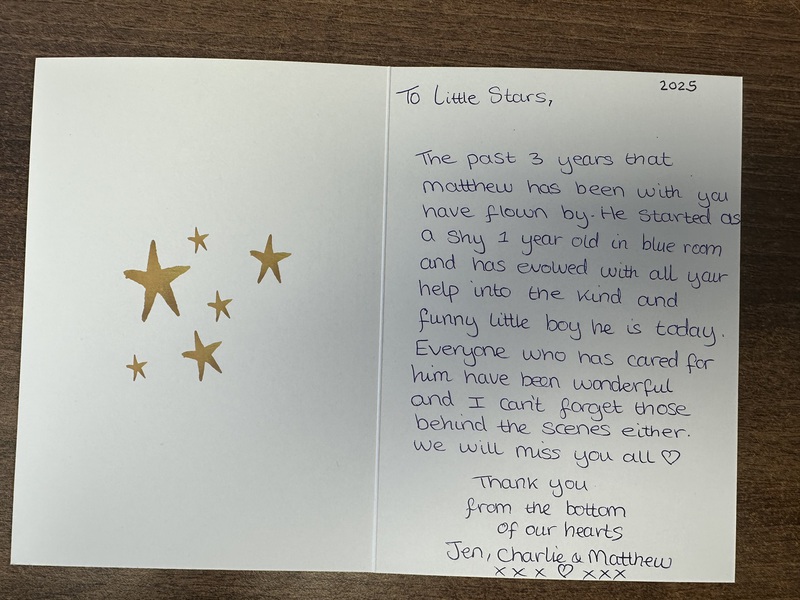 2025
To Little Stars,
The past 3 years that
matthew has been with you
have flown by. He started as
a shy 1 year old in blue room
and has evolved with all your
help into the kind and
funny little boy he is today.
Everyone who has cared for
him have been wonderful
and I can't forget those
behind the scenes either.
We will miss you all ♡
Thank you
from the bottom
of our hearts
Jen, Charlie & Matthew
x x x ♡ x x x